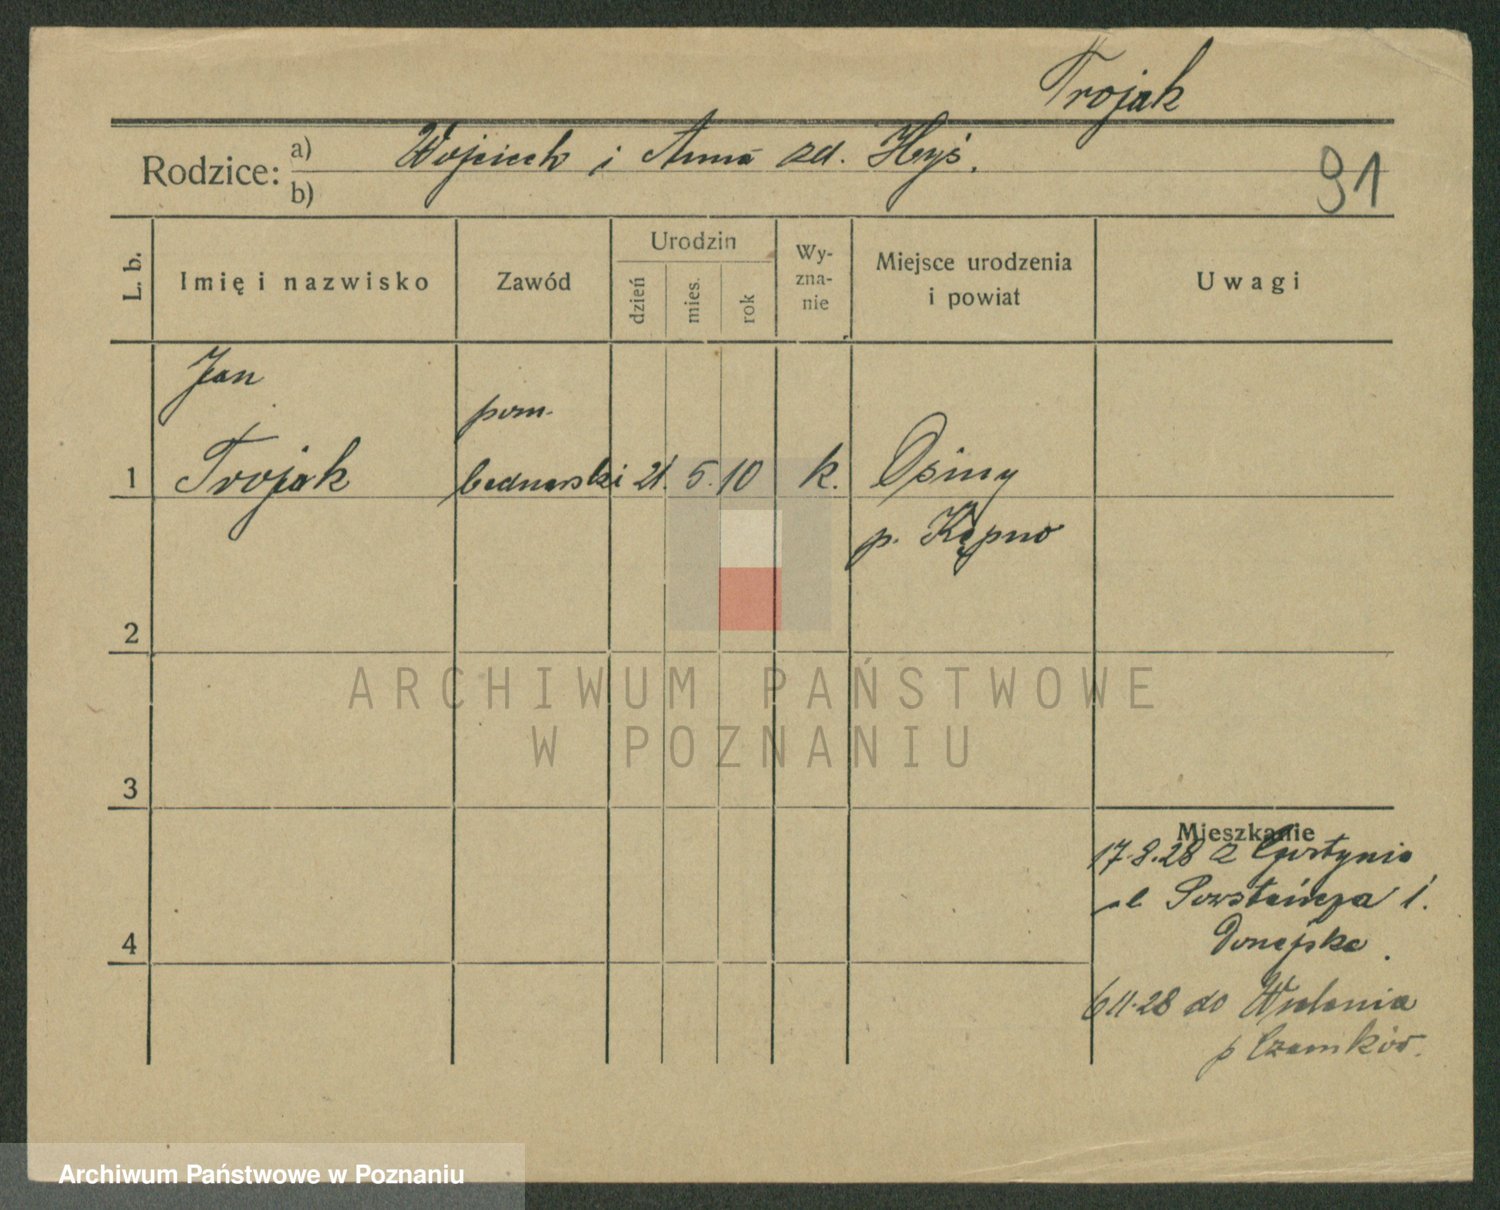 Trojak
Rodzice: a) Wojciech i Anna zd. Hyś.
b)
91
L. b.
Imię i nazwisko
Zawód
Urodzin
dzień
mies.
rok
Wy-
zna-
nie
Miejsce urodzenia
i powiat
Uwagi
Jan
pom.
1 Trojak bednarski 21. 5. 10 k. Osiny
p. Kępno
2
3
4
ARCHIWUM PAŃSTWOWE
W POZNANIU
Mieszkanie
17.8.28 z Gostynia
ul Powstańcza 1.
6 11.28 do Wielenia
p Czarnków.
Archiwum Państwowe w Poznaniu